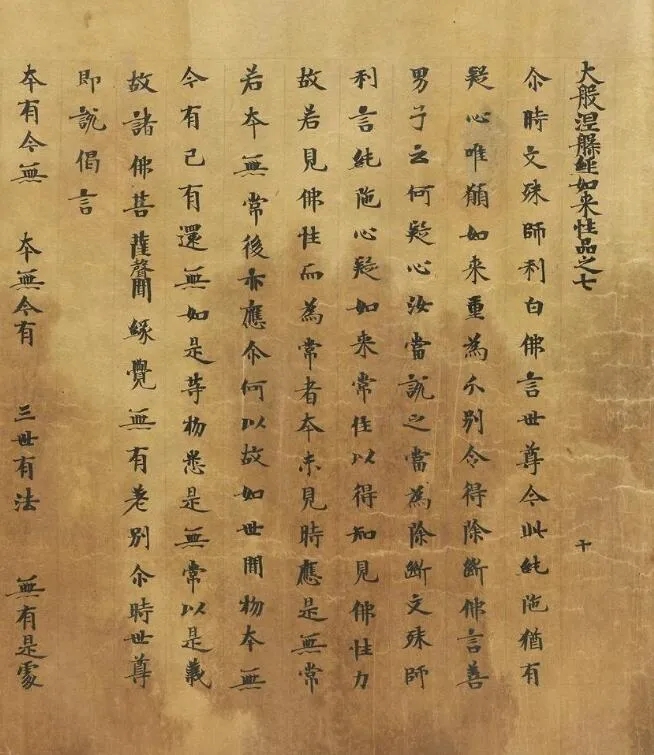 大般涅槃經如来性品之七
十
尒時文殊師利白佛言世尊今此純陁猶有
疑心唯願如来重為分別令得除斷佛言善
男子云何疑心汝當說之當為除斷文殊師
利言純陁心疑如来常住以得知見佛性力
故若見佛性而為常者本未見時應是無常
若本無常後亦應尒何以故如世間物本無
今有已有還無如是等物悉是無常以是義
故諸佛菩薩聲聞緣覺無有差別尒時世尊
即說偈言
本有今無　本無今有　三世有法　無有是處